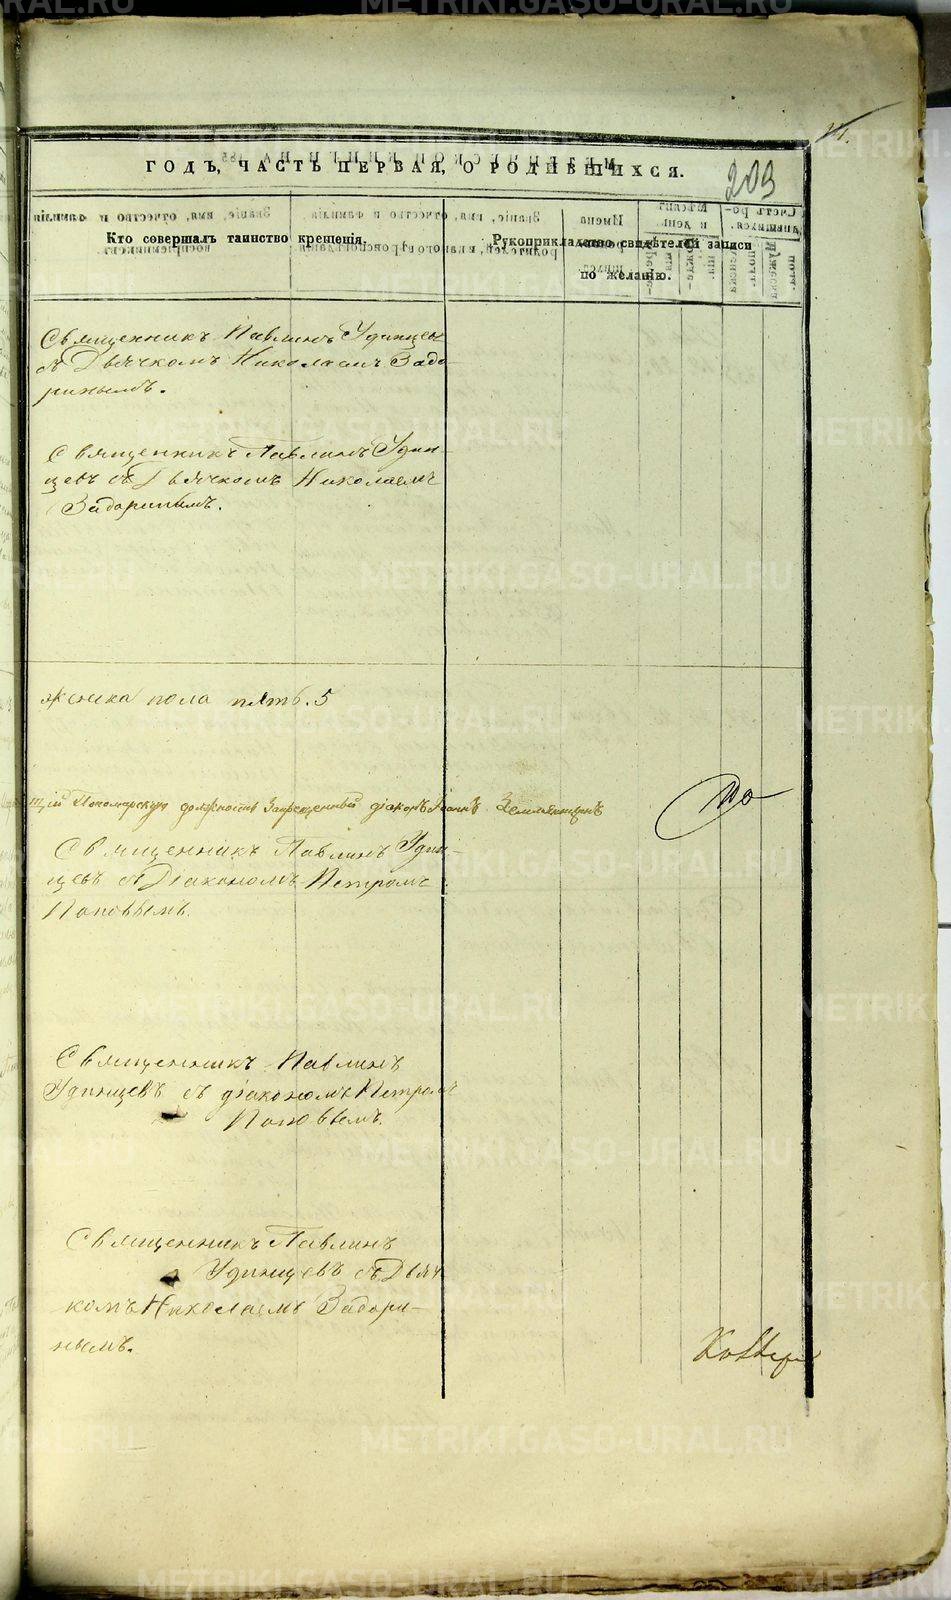 ГОДЪ, ЧАСТЬ ПЕРВАЯ, О РОДИВШИХСЯ.
203
Кто совершалъ таинство крещенія.
Рукоприкладство свидѣтелей записи
по желанію.
Священникъ Павлинъ Удинцевъ
съ Дьячкомъ Николаемъ Задо
ринымъ.
Священникъ Павлинъ Удин-
цевъ съ Дьячкомъ Николаемъ
Задоринымъ.
женска пола пять. 5
щій Пономарскую должность Запрещенный діаконъ Іоаннъ Земляницынъ
по
Священникъ Павлинъ Удин-
цевъ съ Діакономъ Петромъ
Поповымъ.
Священникъ Павлинъ
Удинцевъ съ діакономъ Петромъ
Поповымъ.
Священникъ Павлинъ
Удинцевъ съ Дьяч
комъ Николаемъ Задори-
нымъ.
METRIKI.GASO-URAL.RU